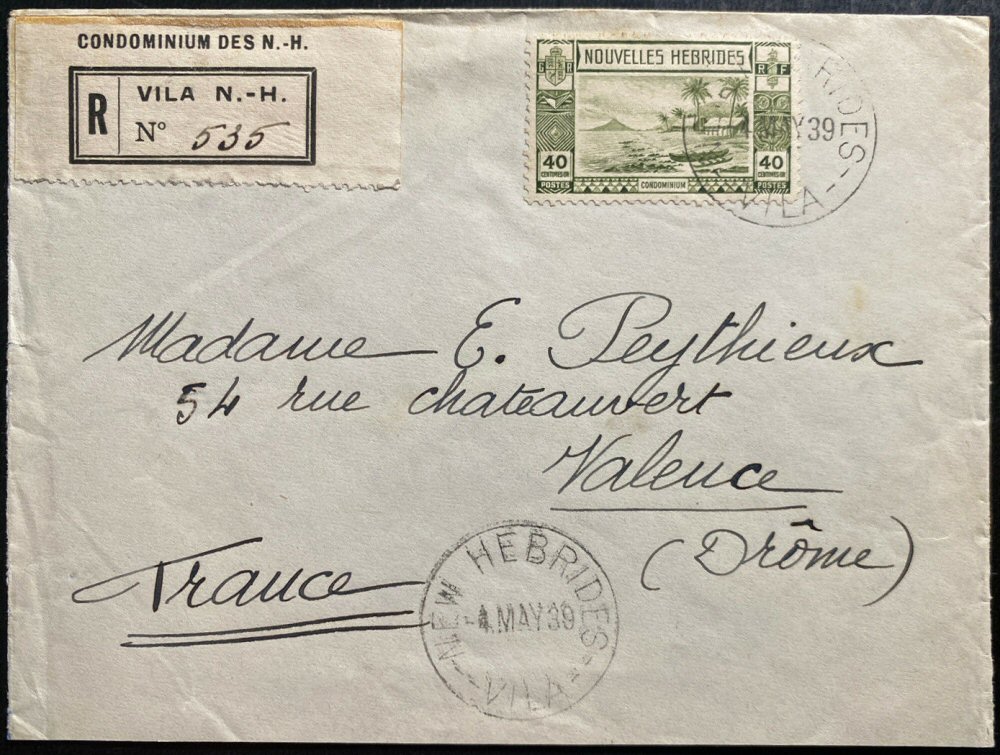 CONDOMINIUM DES N.-H.
R
VILA N.-H.
N° 535
NOUVELLES HEBRIDES
G R
R F
40
CENTIMES OR
POSTES
CONDOMINIUM
40
CENTIMES OR
POSTES
RIDES
MAY 39
VILA
Madame E. Peythieux
54 rue chateauvert
Valence
(Drôme)
France
NEW HEBRIDES
MAY 39
VILA